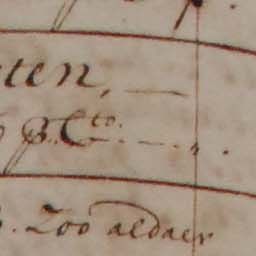 ten, —
p. Cto. — . — . „ .
. Zoo aldaer